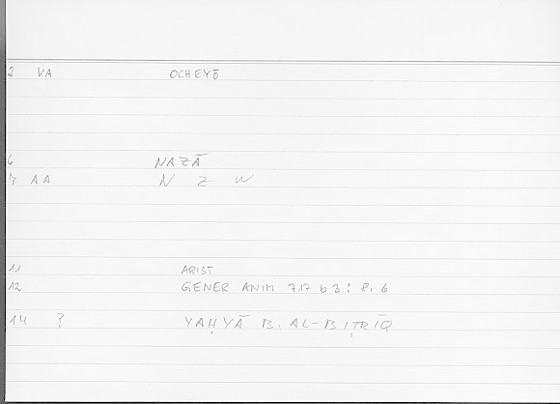 2 VA OCHEYŌ
6 NAZĀ
7 AA N Z W
11 ARIST
12 GENER ANIM 717 b 3 : 8, 6
14 ? YAḤYĀ B. AL-BIṬRĪQ